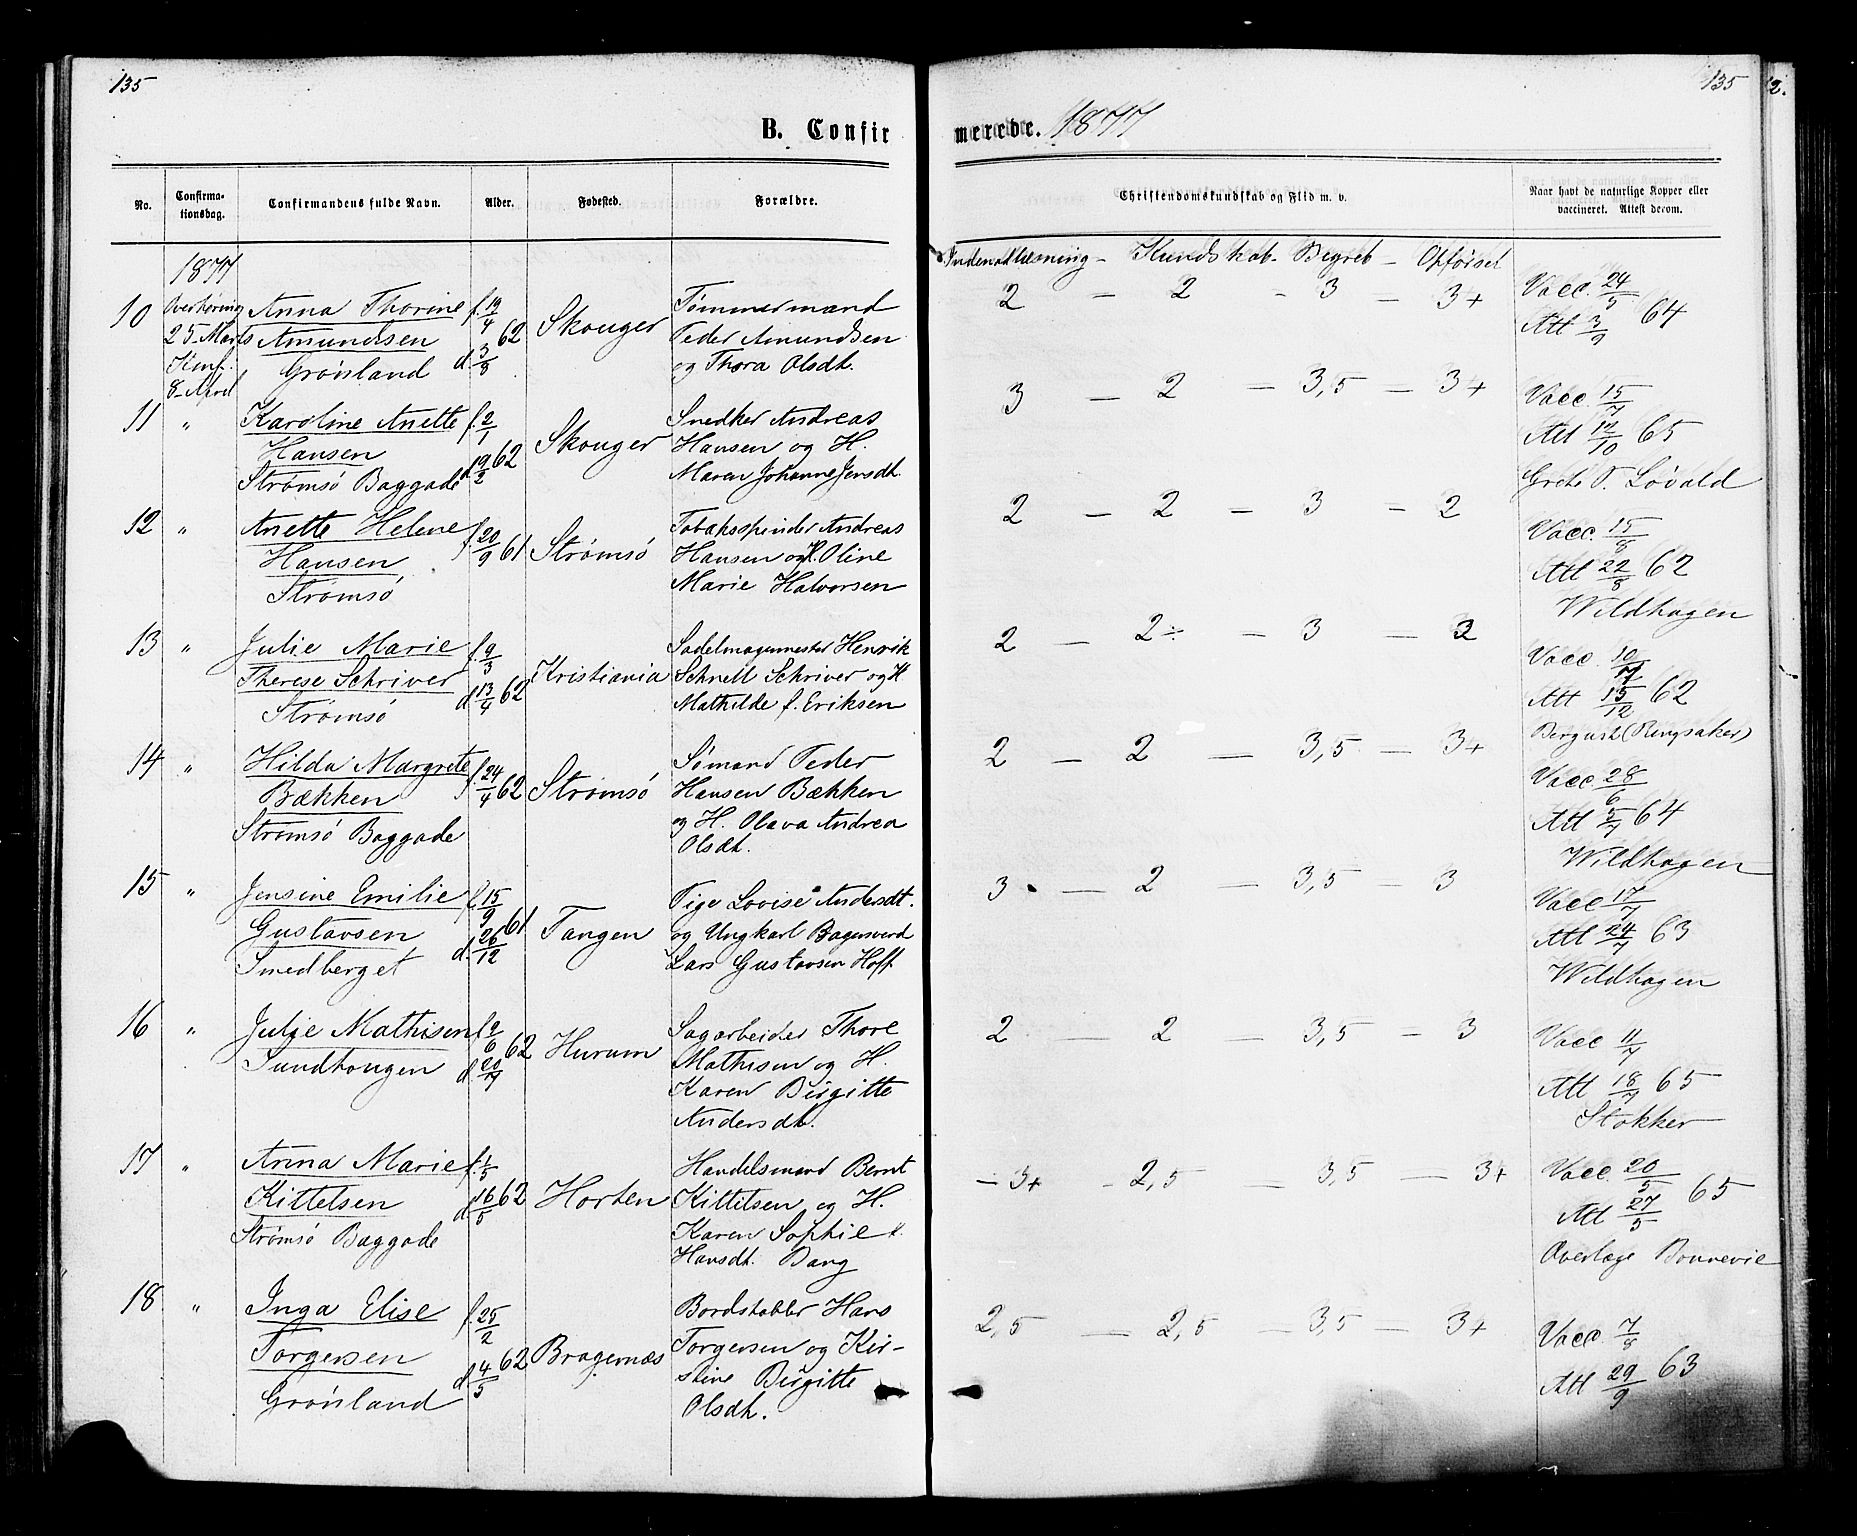 135
135
2.
B. Confir
merede. 1877
No.
Confirma-
tionsdag.
Confirmandens fulde Navn.
Alder.
Fødested.
Forældre.
Christendomskundskab og Flid m. v.
Naar havt de naturlige Kopper eller
vaccineret. Attest derom.
1877
Indenadlæsning - Kundskab - Begreb - Opførsel
10 Overhøring Anna Thorine f. 19/4 62 Skouger Tømmermand
25 Marts Amundsen d. 3/8 Peder Amundsen
Konf. Grønland og Thora Olsdt.
8 April
2 - 2 - 3 - 3+ Vacc. 24/5 64
Att 3/9
11 " Karoline Anette f. 2/1 62 Skouger Snedker Andreas
Hansen d 9/2 Hansen og H.
Strømsø Baggade Maren Johanne Jensdt.
3 - 2 - 3,5 - 3+ Vacc. 15/7
Att 12/10 65
Grethe P. Løvald
12 " Anette Helene f. 20/9 61 Strømsø Tobakspinder Andreas
Hansen Hansen og H. Oline
Strømsø Marie Halvorsen
2 - 2 - 3 - 2 Vacc. 15/8
Att 22/8 62
Wildhagen
13 " Julie Marie f. 9/3 Kristiania Sadelmagermester Henrik
Therese Schriver d 13/4 62 Schnell Schriver og H
Strømsø Mathilde f. Eriksen
2 - 2÷ - 3 - 2 Vacc. 10/7
Att 15/12 62
(Ringsaker)
14 " Hilda Margrete f. 24/4 62 Strømsø Sømand Peder
Bækken Hansen Bækken
Strømsø Baggade og H. Olava Andrea
Olsdt.
2 - 2 - 3,5 - 3+ Vacc. 28/6
Att 5/7 64
Wildhagen
15 " Jensine Emilie f. 15/9 61 Tangen Pige Lovise Andersdt.
Gustavsen d. 26/12 og Ungkarl Bagersvend
Smedberget Lars Gustavsen Hoff
3 - 2 - 3,5 - 3 Vacc 17/7
Att 24/7 63
Wildhagen
16 " Julie Mathisen f 2/6 62 Hurum Sagarbeider Thore
Sundhougen d. 20/7 Mathisen og H.
Karen Birgitte
Andersdt.
2 - 2 - 3,5 - 3 Vacc 11/7
Att 18/7 65
Stokker
17 " Anna Marie f. 1/5 Horten Handelsmand Bernt
Kittelsen d 16/5 62 Kittelsen og H.
Strømsø Baggade Karen Sophie
Hansdt. Bang
- 3+ - 2,5 - 3,5 - 3+ Vacc. 20/5 65
Att 27/5
Overlæge Bonnevie
18 " Inga Elise f. 25/2 Bragernæs Bordstabler Hans
Torgersen d 4/5 62 Torgersen og Kir-
Grønland stine Birgitte
Olsdt.
2,5 - 2,5 - 3,5 - 3+ Vacc. 7/8
Att 29/9 63